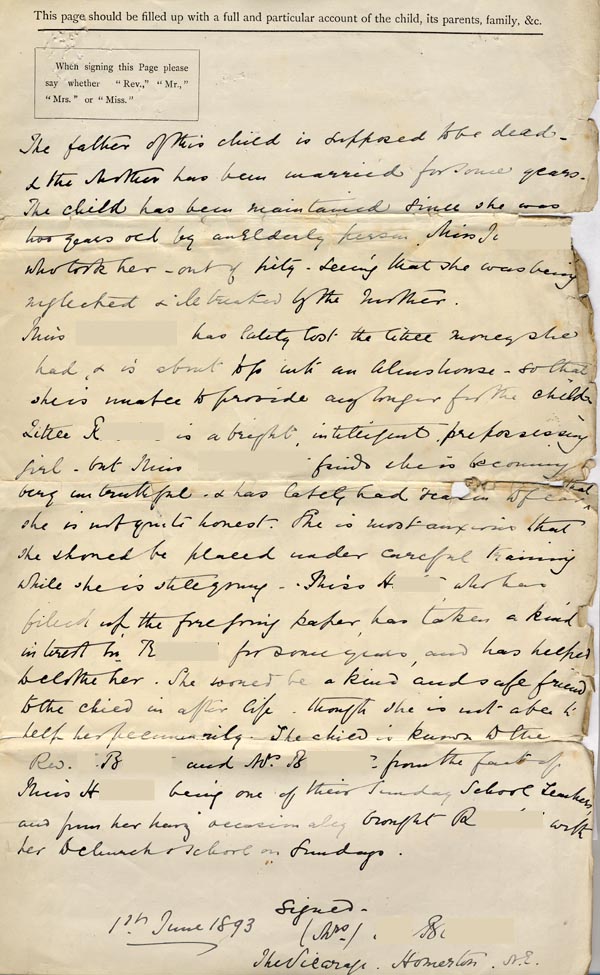 This page should be filled up with a full and particular account of the child, its parents, family, &c.
When signing this Page please
say whether "Rev.," "Mr.,"
"Mrs." or "Miss."
The father of this child is supposed to be dead -
& the Mother has been married for some years.
The child has been maintained since she was
two years old by an Elderly person Miss J
who took her - out of pity - seeing that she was being
neglected & ill treated by the Mother.
Miss has lately lost the little money she
had, & is about to go into an Almshouse - so that
she is unable to provide any longer for the child
Little R is a bright, intelligent, prepossessing
girl - but Miss finds she is becoming
very untruthful & has lately had reason to fear that
she is not quite honest. She is most anxious that
she should be placed under careful training
while she is still young - Miss H who has
filled up the foregoing paper, has taken a kind
interest in R for some years, and has helped
to clothe her. She would be a kind and safe friend
to the child in after life - though she is not able to
help her pecuniarily. The child is known to the
Rev. B and Mrs. B from the fact of
Miss H being one of their Sunday School Teachers,
and from her having occasionally brought R with
her to Church & School on Sundays.
Signed -
1st June 1893 (Mrs) B
The Vicarage, Homerton, N.E.